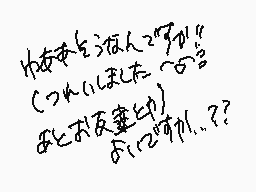 わああそうなんですか!!
(つれいしました〜
あとお友達とか)
よいですか..??